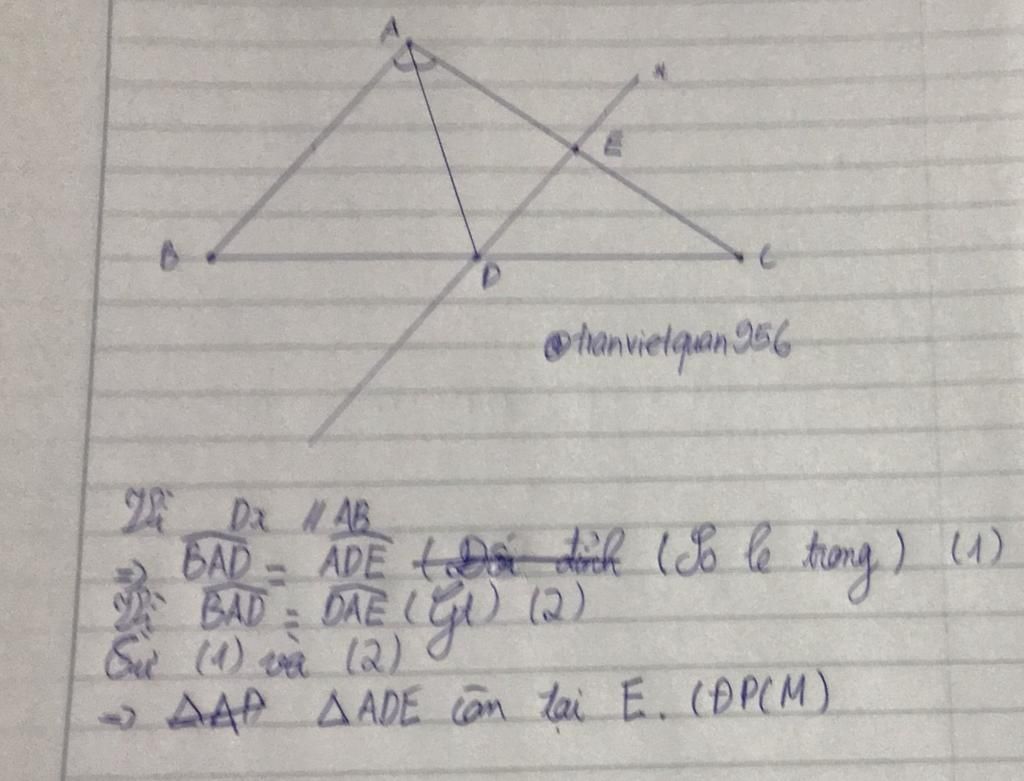 A
x
E
B
D
C
@tranvietquan956
Vì Dx // AB
=> BAD = ADE (Đối đỉnh (So le trong) (1)
Vì BAD = DAE (Gt) (2)
Từ (1) và (2)
=> ΔAD ΔADE cân tại E. (ĐPCM)